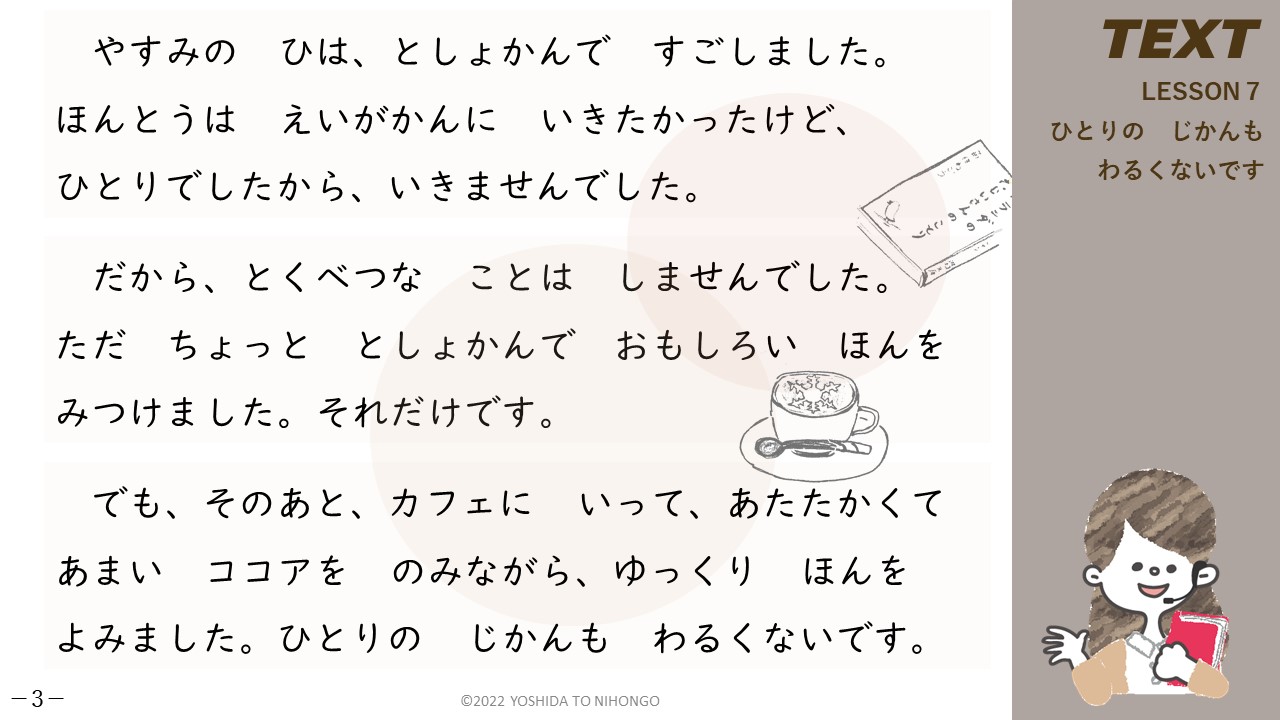 やすみの　ひは、としょかんで　すごしました。
ほんとうは　えいがかんに　いきたかったけど、
ひとりでしたから、いきませんでした。
だから、とくべつな　ことは　しませんでした。
ただ　ちょっと　としょかんで　おもしろい　ほんを
みつけました。それだけです。
でも、そのあと、カフェに　いって、あたたかくて
あまい　ココアを　のみながら、ゆっくり　ほんを
よみました。ひとりの　じかんも　わるくないです。
TEXT
LESSON 7
ひとりの　じかんも
わるくないです
－3－
©2022 YOSHIDA TO NIHONGO